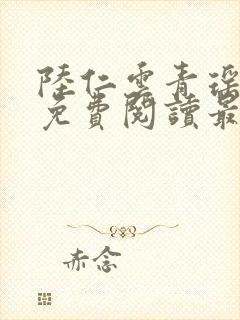 陸仁雲青瑶
免費閱讀最
赤念